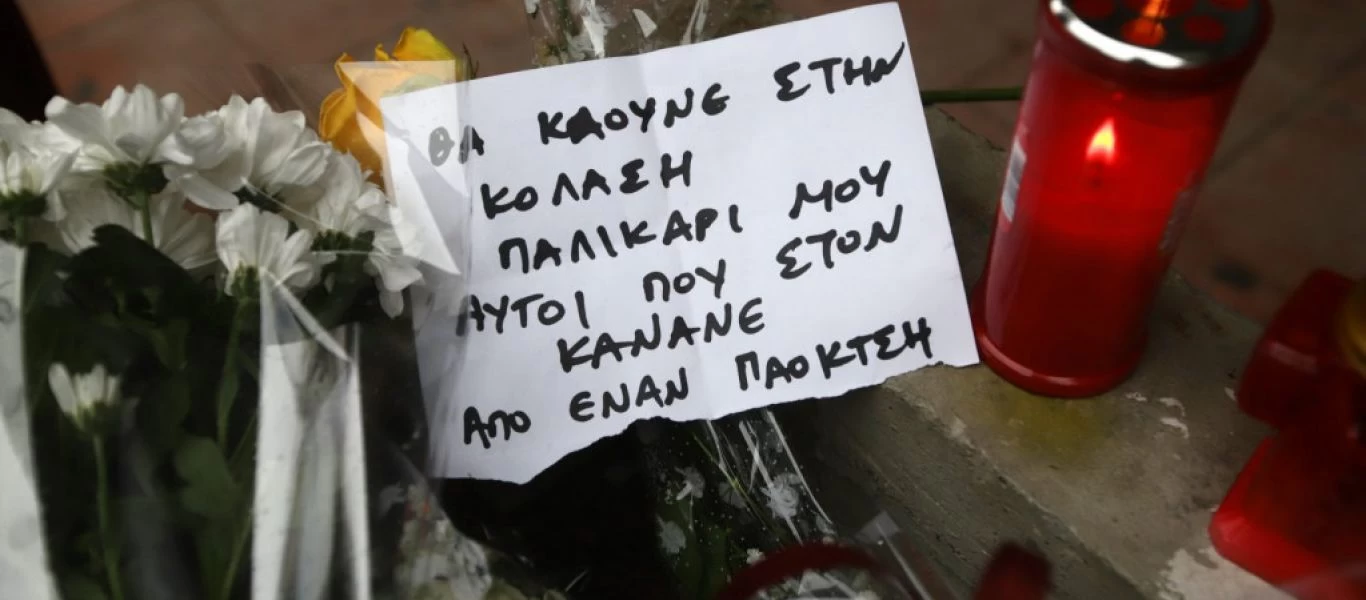 ΘΑ ΚΑΟΥΝΕ ΣΤΗΝ
ΚΟΛΑΣΗ
ΠΑΛΙΚΑΡΙ ΜΟΥ
ΑΥΤΟΙ ΠΟΥ ΣΤΟΝ
ΚΑΝΑΝΕ
ΑΠΟ ΕΝΑΝ ΠΑΟΚΤΣΗ